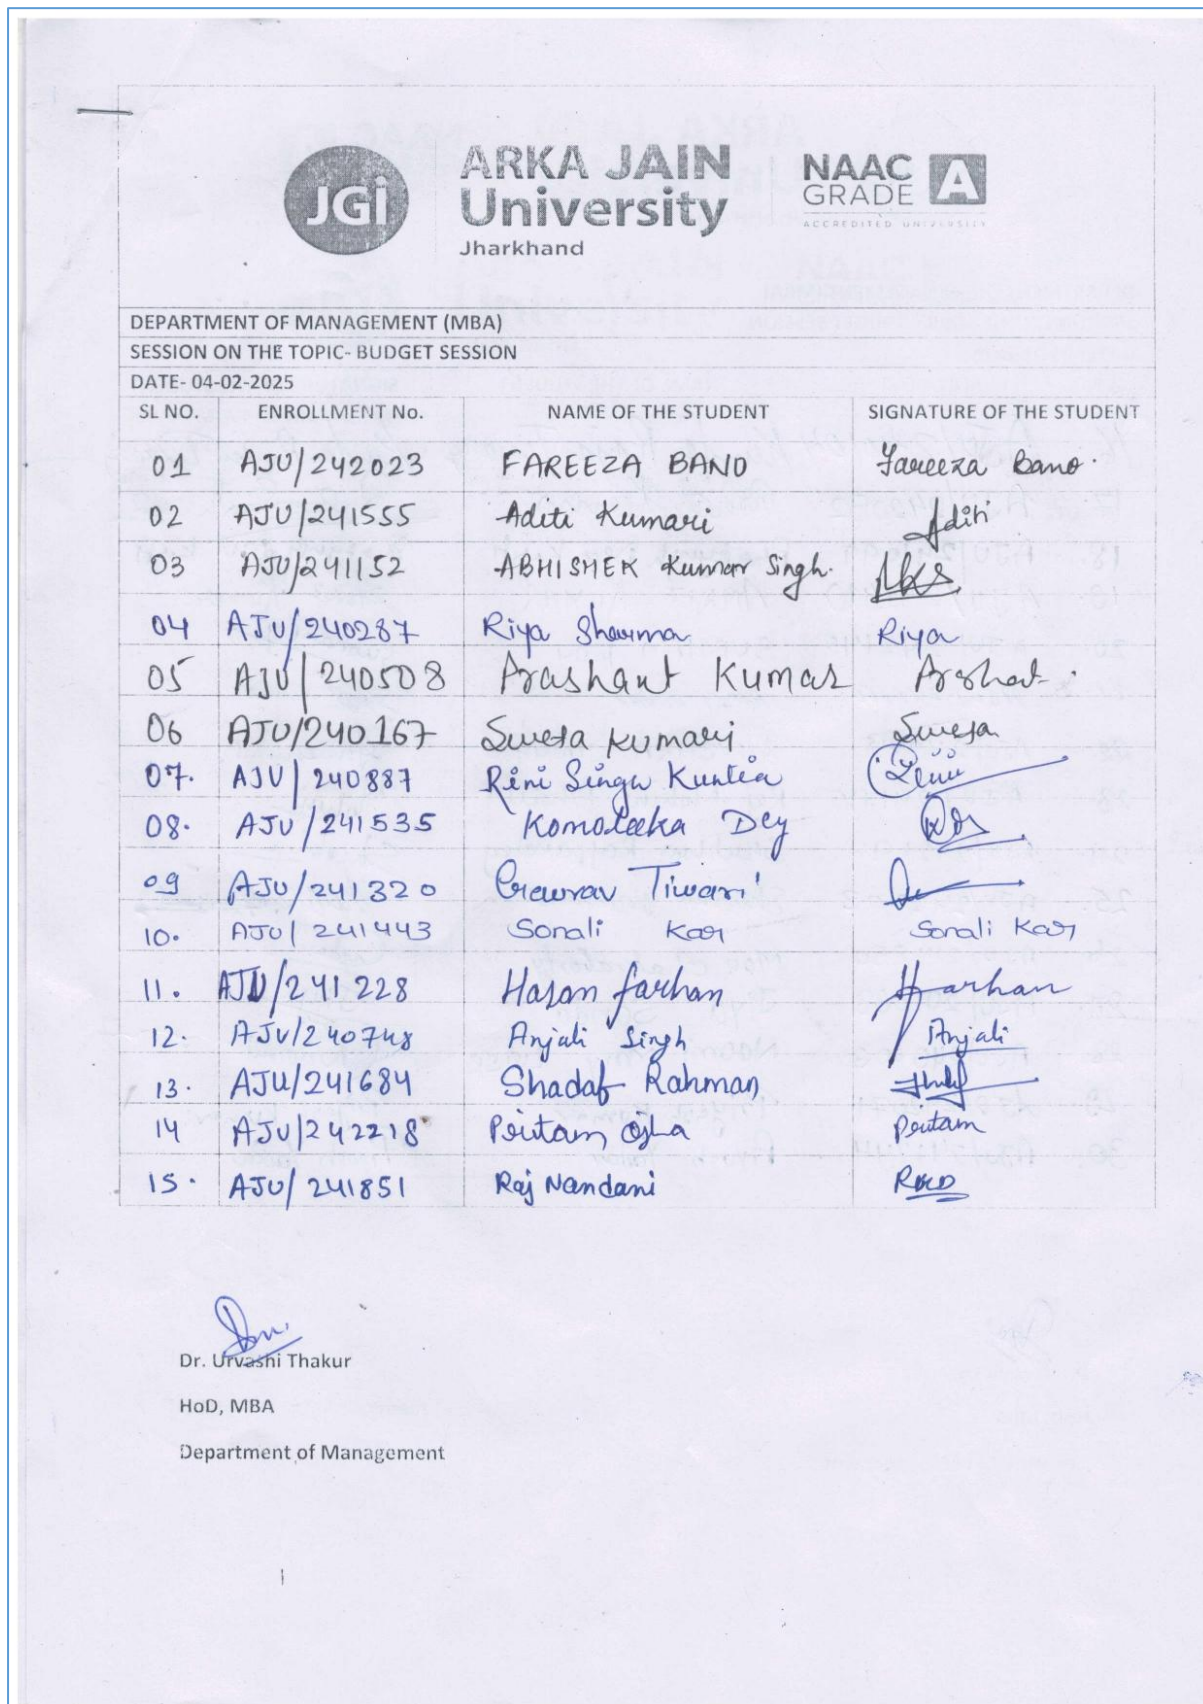 JGi
ARKA JAIN
University
Jharkhand
NAAC
GRADE A
ACCREDITED UNIVERSITY
DEPARTMENT OF MANAGEMENT (MBA)
SESSION ON THE TOPIC- BUDGET SESSION
DATE- 04-02-2025
SL NO. ENROLLMENT No. NAME OF THE STUDENT SIGNATURE OF THE STUDENT
01 AJU/242023 FAREEZA BANO Fareeza Bano.
02 AJU/241555 Aditi Kumari Aditi
03 AJU/241152 ABHISHEK Kumar Singh. AKS
04 AJU/240287 Riya Sharma Riya
05 AJU/240508 Prashant Kumar
06 AJU/240167 Sweta Kumari Sweta
07. AJU/240887 Rini Singh Kuntia
08. AJU/241535 Komoleeka Dey
09 AJU/241320 Gaurav Tiwari
10. AJU/241443 Sonali Kar Sonali Kar
11. AJU/241228 Hasan farhan Hfarhan
12. AJU/240748 Anjali Singh Anjali
13. AJU/241684 Shadab Rahman
14 AJU/242218 Pritam Ojha Pritam
15. AJU/241851 Raj Nandani
Dr. Urvashi Thakur
HoD, MBA
Department of Management